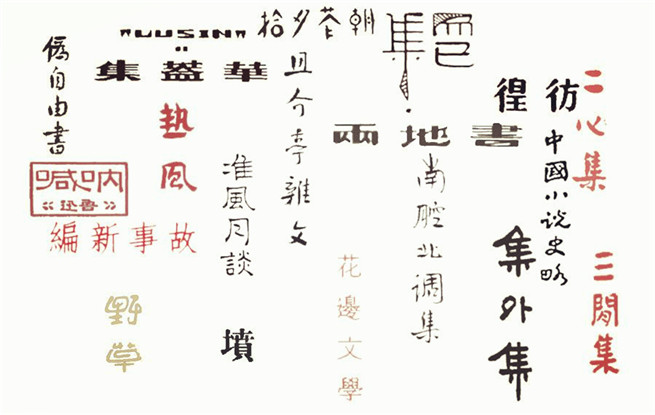 朝花夕拾
而已集
"LUSIN"
華蓋集
僞自由書
且介亭雜文
彷徨
二心集
熱風
兩地書
中國小说史略
吶喊
魯迅
准風月談
南腔北调集
故事新編
集外集
三閒集
花邊文學
野草
墳